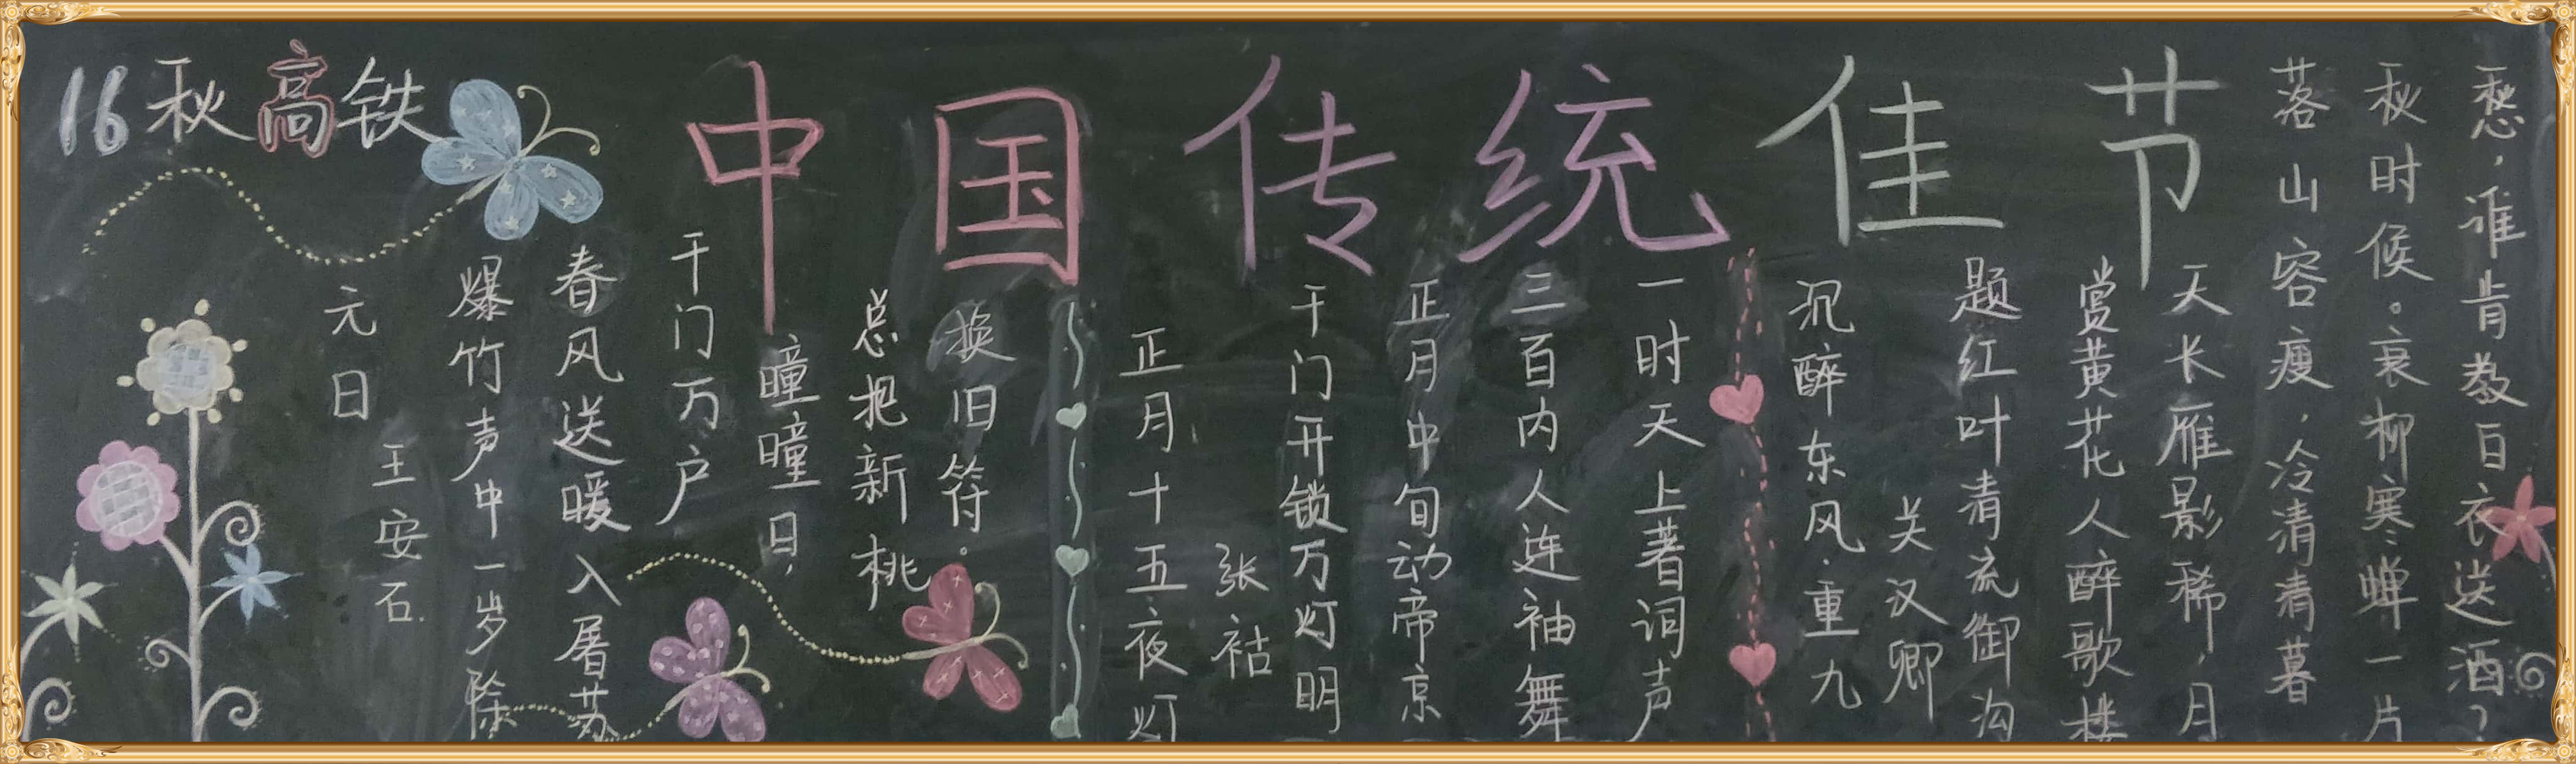 16秋高铁
中国传统佳节
元日
王安石.
爆竹声中一岁除
春风送暖入屠苏
千门万户
曈曈日,
总把新桃
换旧符.
正月十五夜灯
张祜
千门开锁万灯明
正月中旬动帝京
三百内人连袖舞
一时天上著词声
沉醉东风·重九
关汉卿
题红叶清流御沟
赏黄花人醉歌楼
天长雁影稀,月
落山容瘦,冷清清暮
秋时候。衰柳寒蝉一片
愁,谁肯教白衣送酒?